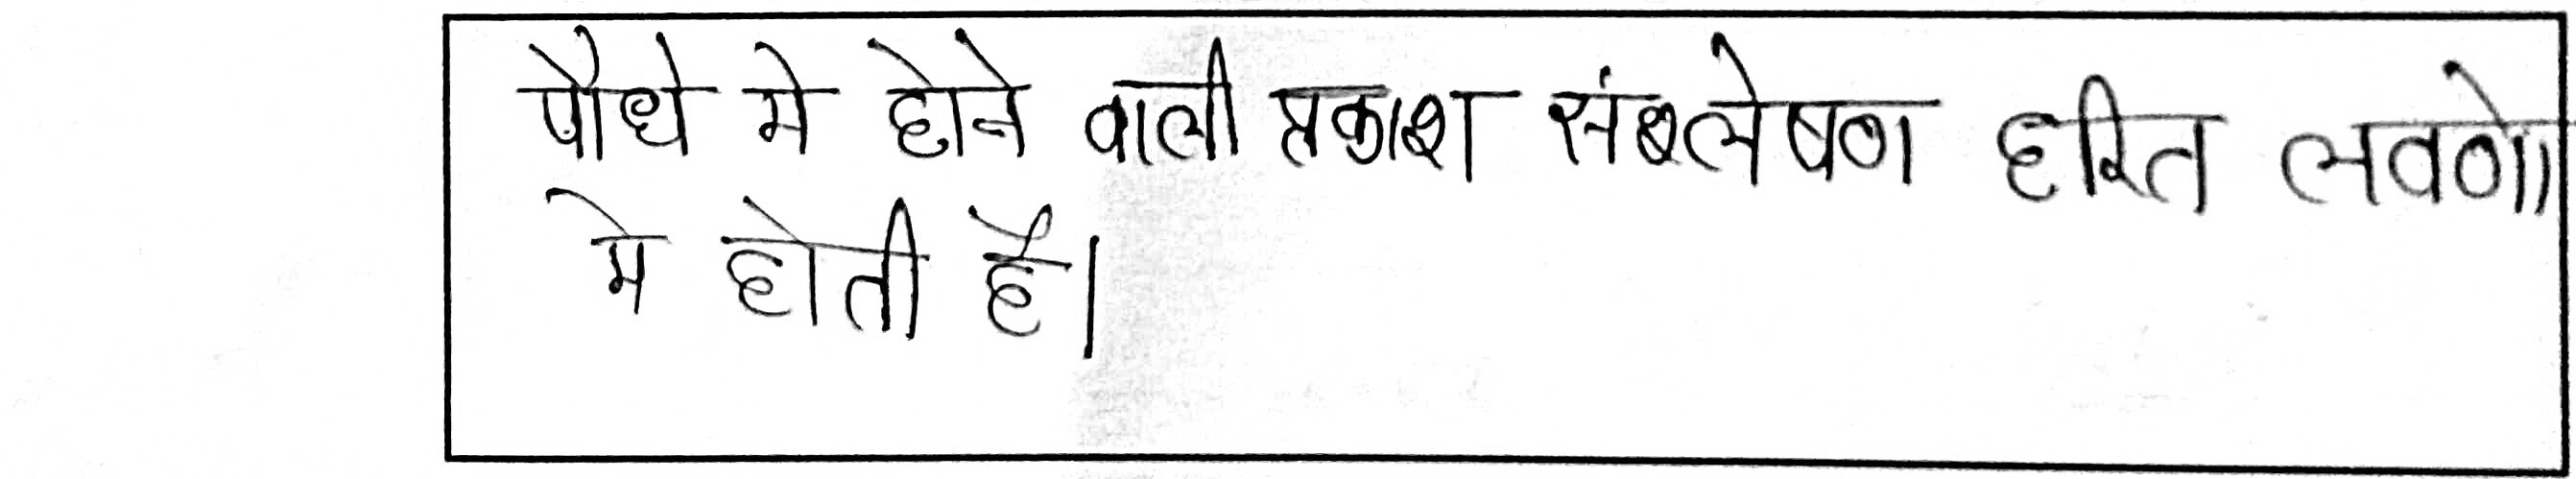 पौधे मे होने वाली प्रकाश संश्लेषण हरित लवणो
मे होती है।